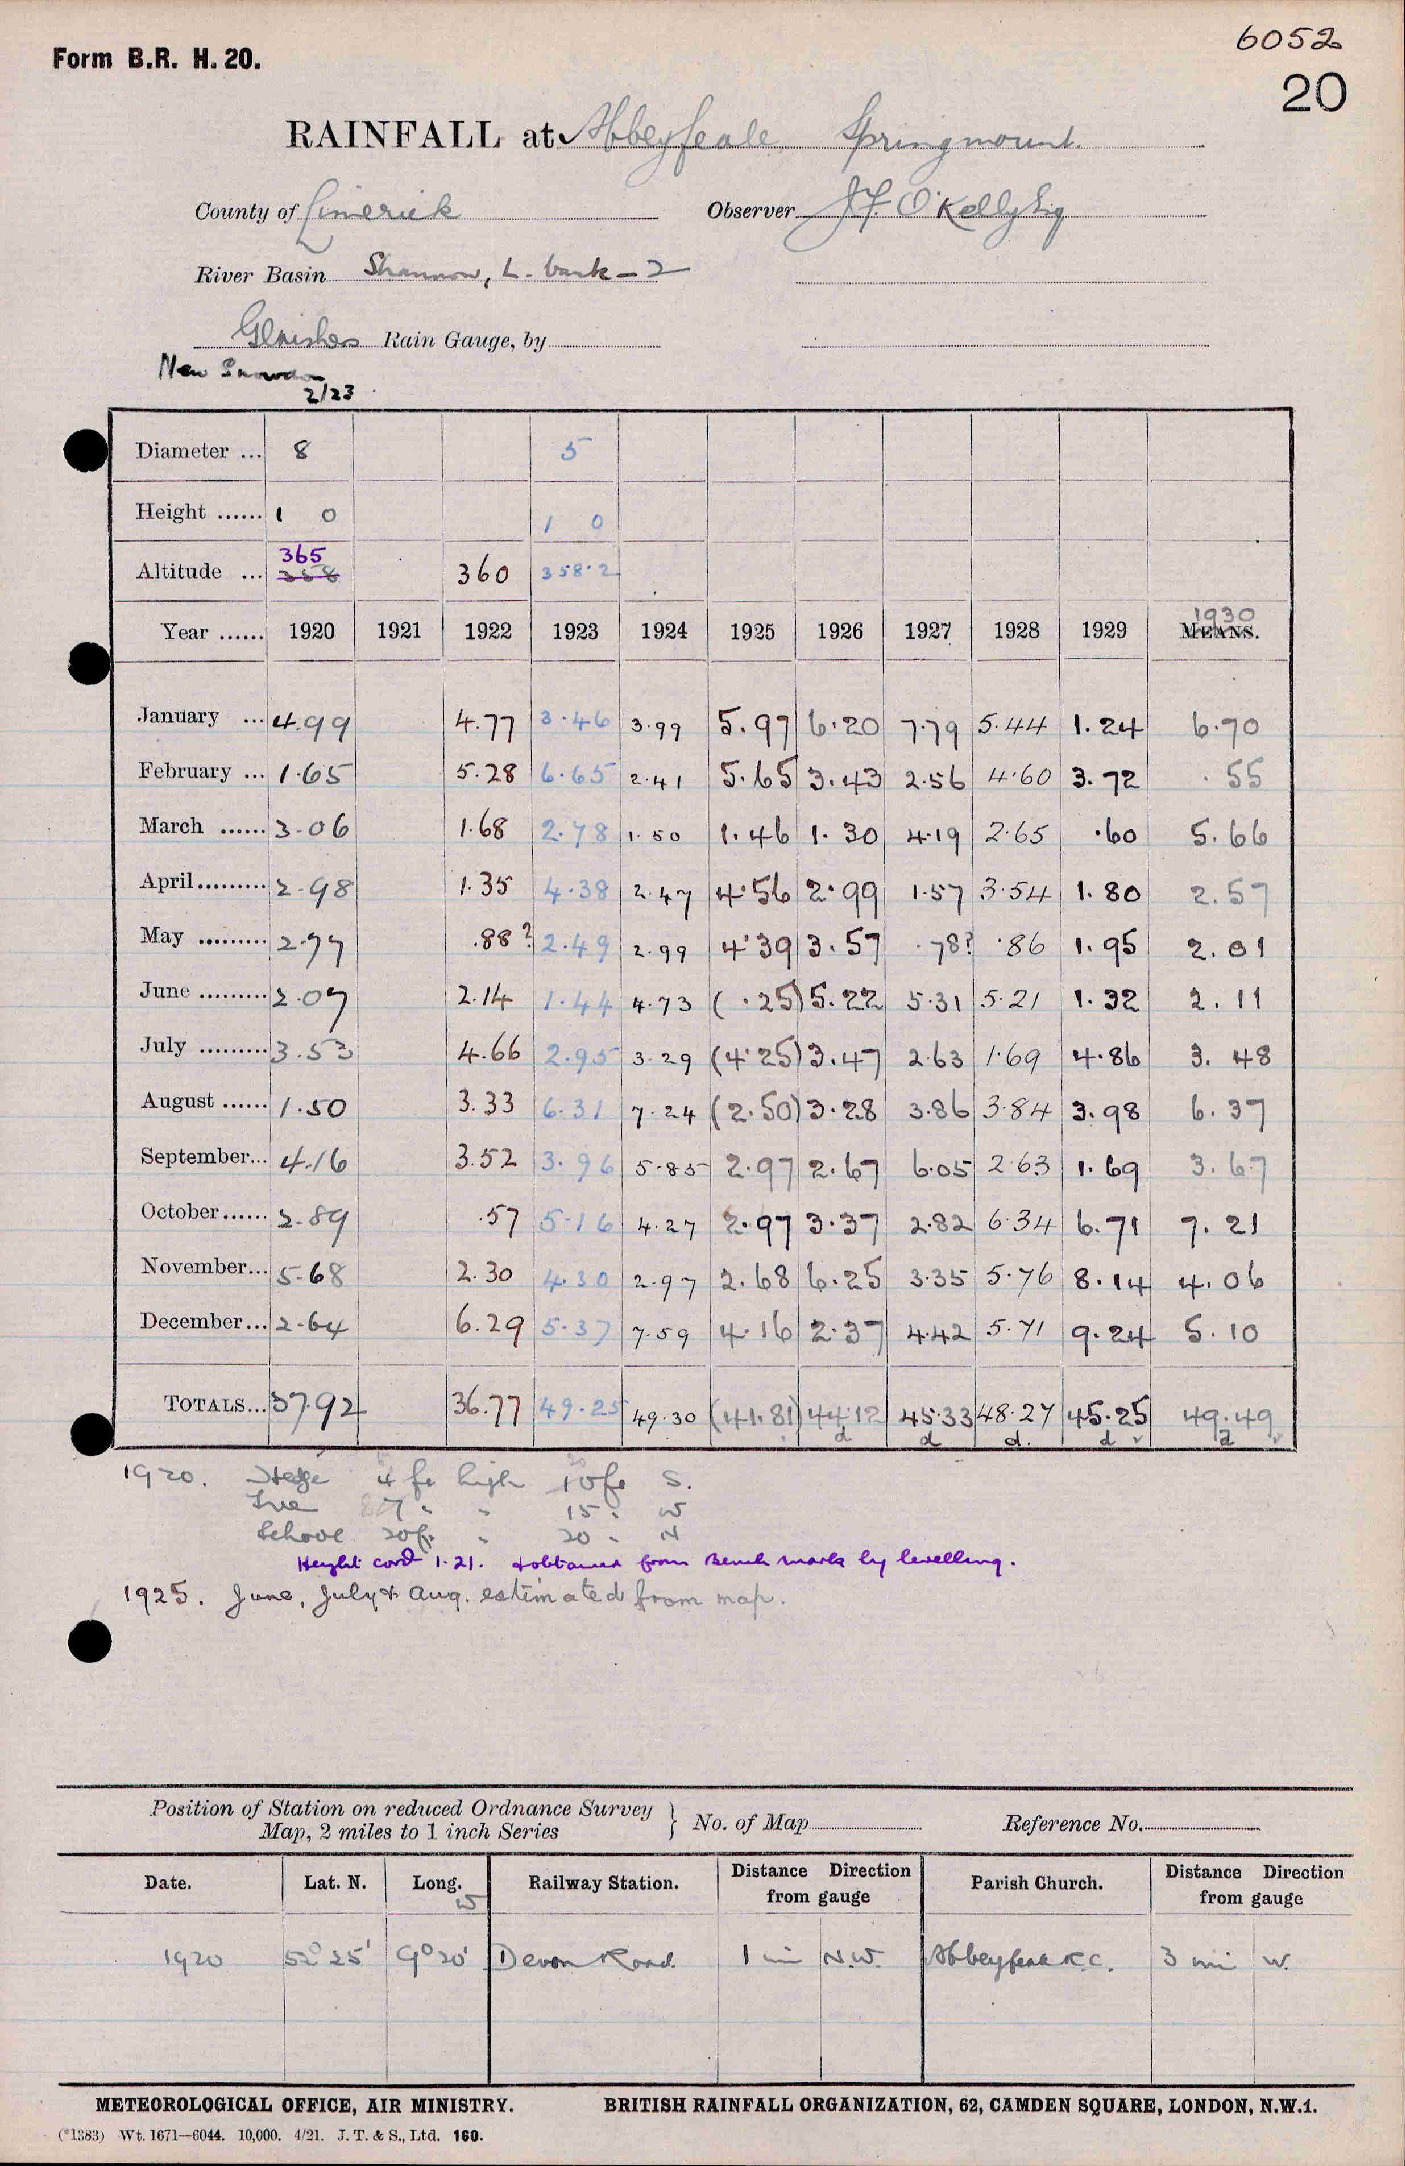 Form B.R. H. 20.
6052
20
RAINFALL at Abbeyfeale Springmount.
County of Limerick Observer J.F. O'Kelly Esq
River Basin Shannon, L. bank - 2
Glaisher Rain Gauge, by
New Snowdon
2/23
Diameter ... 8 5
Height ...... 1 0 1 0
365
Altitude ... 358 360 358.2
1930
Year ...... 1920 1921 1922 1923 1924 1925 1926 1927 1928 1929 MEANS.
January ... 4.99 4.77 3.46 3.99 5.97 6.20 7.79 5.44 1.24 6.70
February ... 1.65 5.28 6.65 2.41 5.65 3.43 2.56 4.60 3.72 .55
March ...... 3.06 1.68 2.78 1.50 1.46 1.30 4.19 2.65 .60 5.66
April......... 2.98 1.35 4.38 2.47 4.56 2.99 1.57 3.54 1.80 2.57
May ......... 2.77 .88? 2.49 2.99 4.39 3.57 .78? .86 1.95 2.01
June ......... 2.07 2.14 1.44 4.73 ( .25) 5.22 5.31 5.21 1.32 2.11
July ......... 3.53 4.66 2.95 3.29 (4.25) 3.47 2.63 1.69 4.86 3.48
August ...... 1.50 3.33 6.31 7.24 (2.50) 3.28 3.86 3.84 3.98 6.37
September... 4.16 3.52 3.96 5.85 2.97 2.67 6.05 2.63 1.69 3.67
October...... 2.89 .57 5.16 4.27 2.97 3.37 2.82 6.34 6.71 7.21
November... 5.68 2.30 4.30 2.97 2.68 6.25 3.35 5.76 8.14 4.06
December... 2.64 6.29 5.37 7.59 4.16 2.37 4.42 5.71 9.24 5.10
TOTALS... 37.92 36.77 49.25 49.30 (41.81) 44.12 45.33 48.27 45.25 49.49
d d d. d d
1920. Hedge 4 ft high 10 ft S.
Tree 27 " " 15 " W
School 20 ft " 20 " N
Height corrd 1.21. & obtained from Bench mark by levelling.
1925. June, July & Aug. estimated from map.
Position of Station on reduced Ordnance Survey
Map, 2 miles to 1 inch Series } No. of Map Reference No.
Date. Lat. N. Long. W Railway Station. Distance Direction from gauge Parish Church. Distance Direction from gauge
1920 52° 25' 9° 20' Devon Road. 1 mi N.W. Abbeyfeale R.C. 3 mi W.
METEOROLOGICAL OFFICE, AIR MINISTRY. BRITISH RAINFALL ORGANIZATION, 62, CAMDEN SQUARE, LONDON, N.W.1.
(*1383) Wt. 1671—6044. 10,000. 4/21. J. T. & S., Ltd. 160.